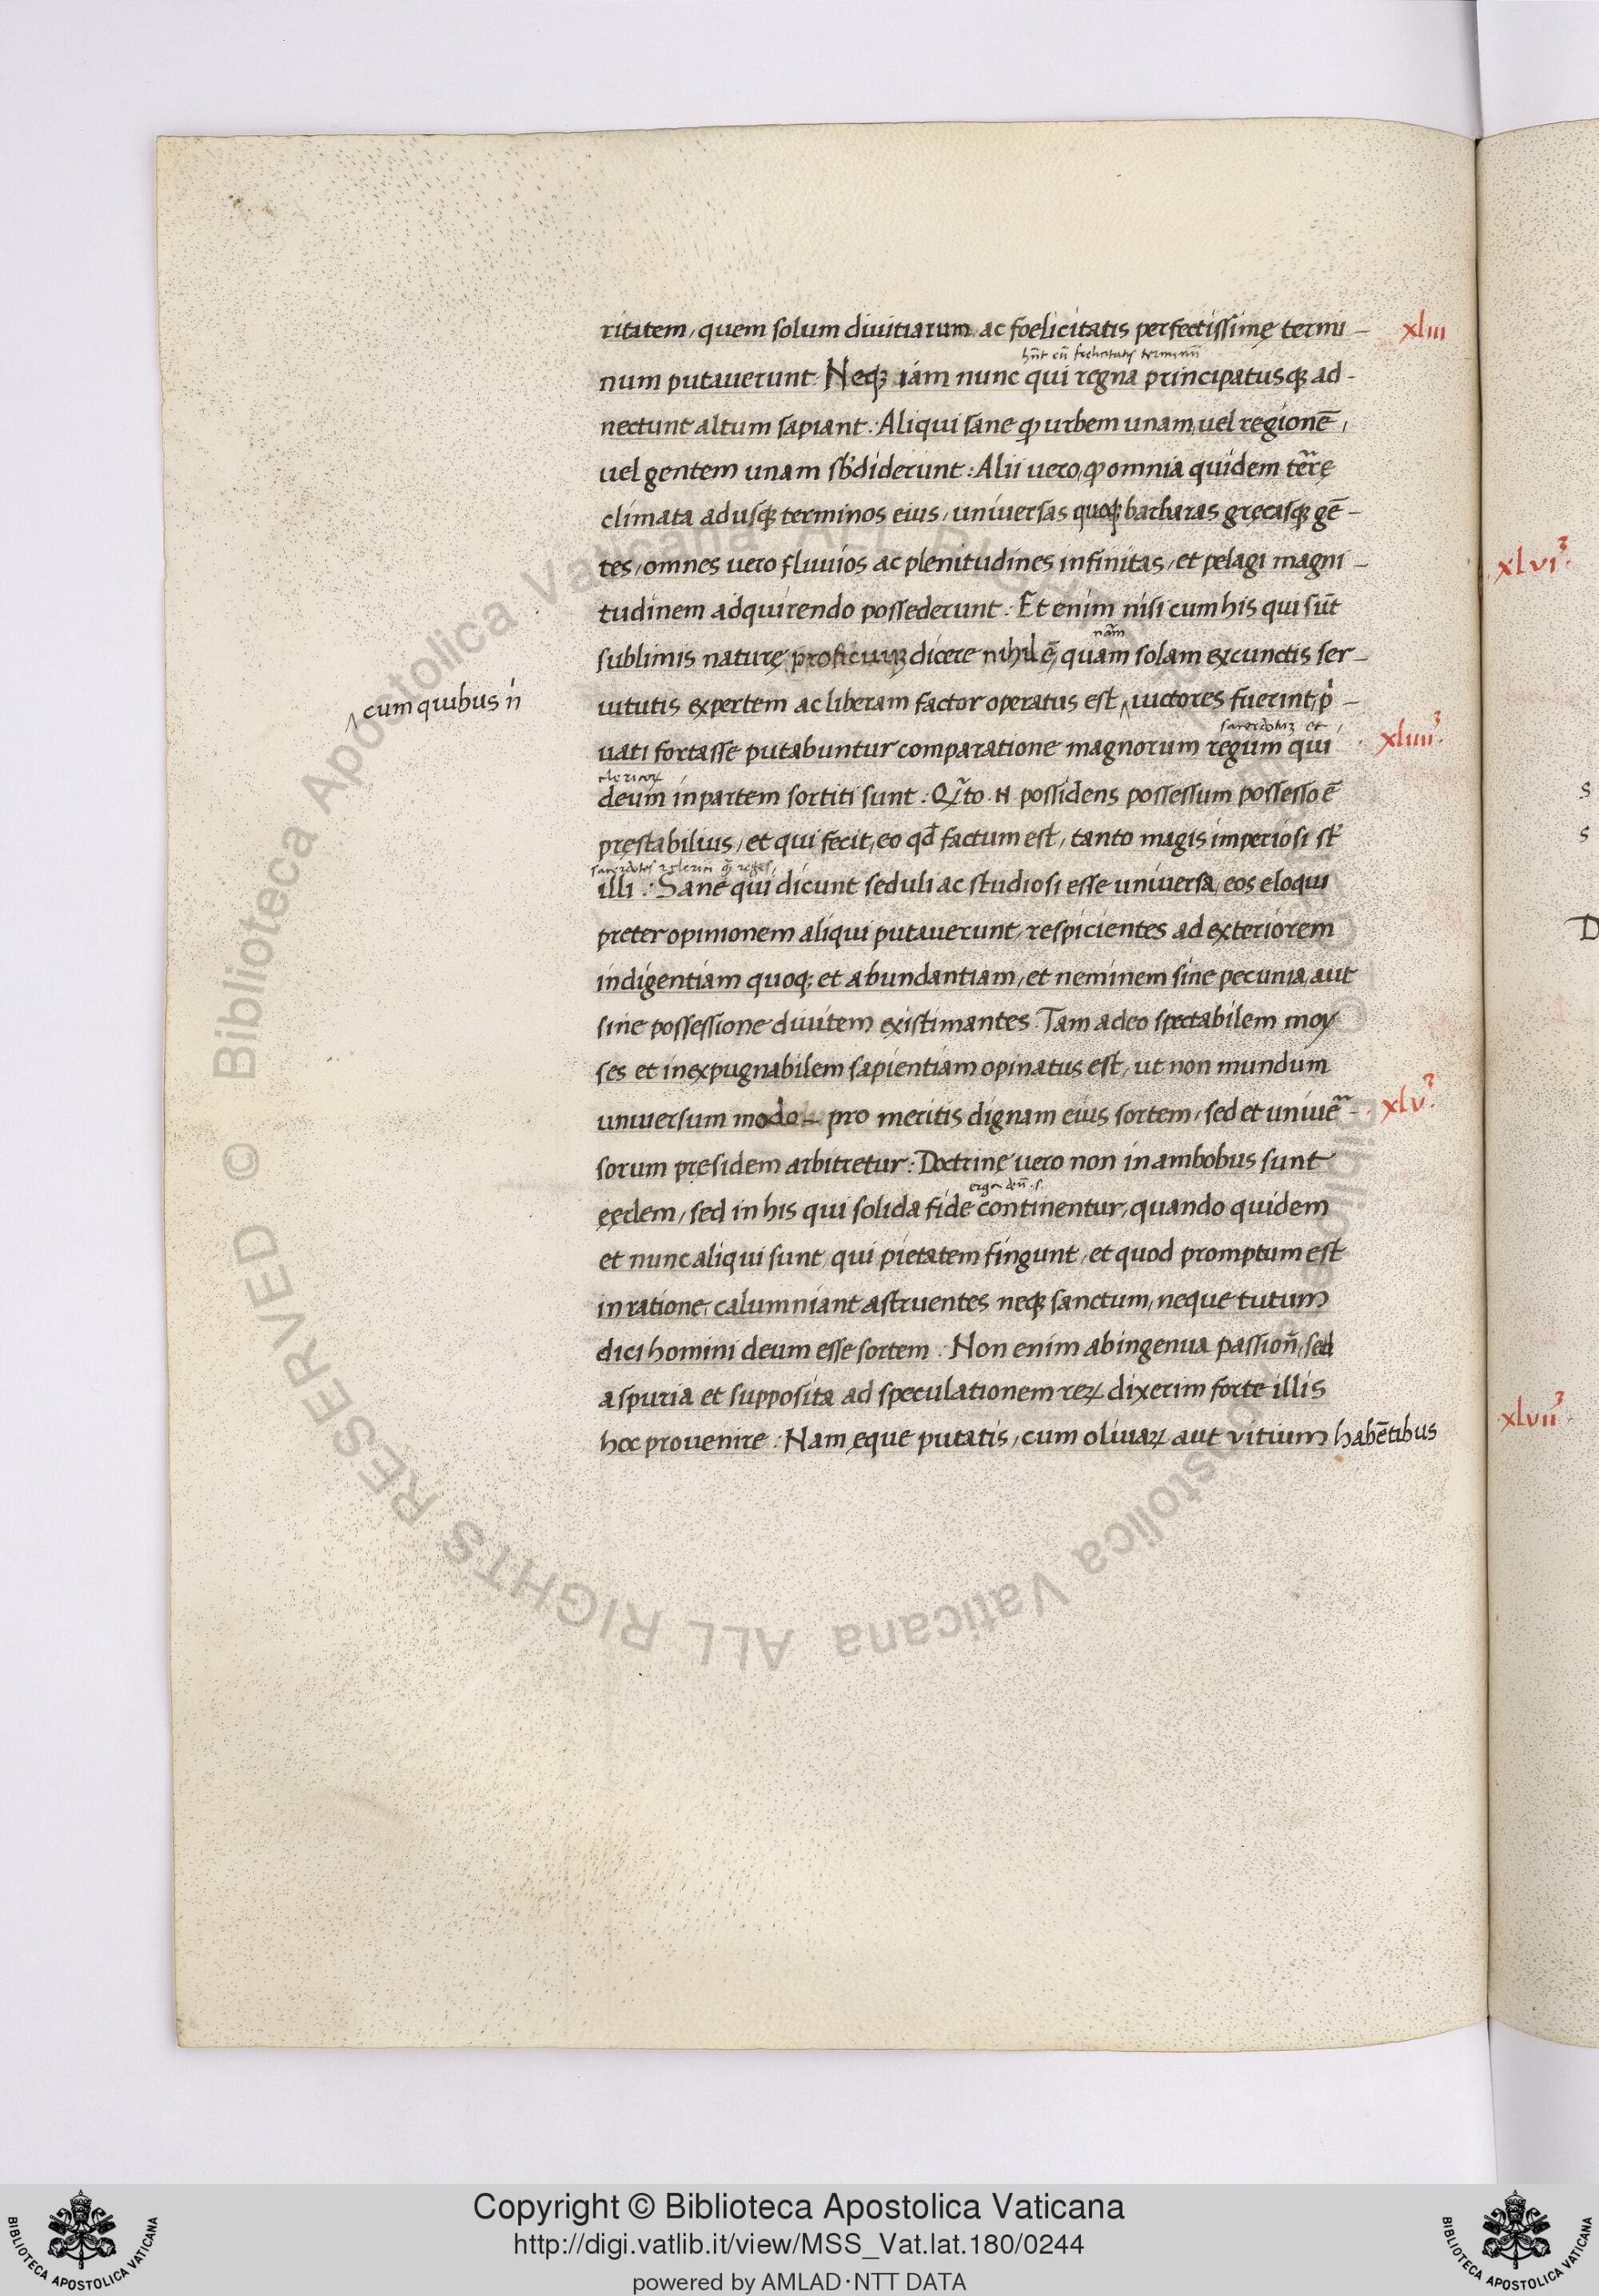 ritatem, quem solum diuitiarum ac foelicitatis perfectissimę termi-
xliii
hn̄t cū foelicitatis terminū
num putauerunt. Neqꝫ iam nunc qui regna principatusqꝫ ad-
nectunt altum sapiant: Aliqui sane ꝙ urbem unam, uel regionē,
uel gentem unam sb'diderunt: Alii uero, ꝙ omnia quidem terrę
climata ad usqꝫ terminos eius, uniuersas quoqꝫ barbaras gręcasqꝫ gē-
tes, omnes uero fluuios ac plenitudines infinitas, et pelagi magni-
tudinem adquirendo possederunt: Et enim nisi cum his qui sūt
nām
sublimis naturę proficuuꝫ dicere nihil ē, quam solam ex cunctis ser-
cum quibus n̄
uitutis expertem ac liberam factor operatus est, uictores fuerint, p̄-
sacerdotuꝫ et
uati fortasse putabuntur comparatione magnorum regum qui
xliiii
clericoꝝ
deum in partem sortiti sunt: Qᷓto .n. possidens possessum possesso ē
pręstabilius, et qui fecit, eo qd̄ factum est, tanto magis imperiosi st̄
illi: Sane qui dicunt seduli ac studiosi esse uniuersa, eos eloqui
preter opinionem aliqui putauerunt, respicientes ad exteriorem
indigentiam quoqꝫ et abundantiam, et neminem sine pecunia, aut
sine possessione diuitem existimantes. Tam adeo spectabilem moy
ses et inexpugnabilem sapientiam opinatus est, ut non mundum
uniuersum modo – pro meritis dignam eius sortem, sed et uniuē-
xlv
sorum pręsidem arbitretur: Doctrinę uero non in ambobus sunt
erga deū .s.
ęędem, sed in his qui solida fide continentur, quando quidem
et nunc aliqui sunt, qui pietatem fingunt, et quod promptum est
in ratione, calumniant astruentes neqꝫ sanctum, neque tutum
dici homini deum esse sortem. Non enim ab ingenua passion̄, sed
a spuria et supposita ad speculationem reꝝ dixerim forte illis
hoc prouenire: Nam ęque putatis, cum oliuaꝝ aut vitium habētibus
xlvi
s
s
D
xlvii
Copyright © Biblioteca Apostolica Vaticana
http://digi.vatlib.it/view/MSS_Vat.lat.180/0244
powered by AMLAD·NTT DATA
BIBLIOTECA APOSTOLICA VATICANA
BIBLIOTECA APOSTOLICA VATICANA
© Biblioteca Apostolica Vaticana ALL RIGHTS RESERVED